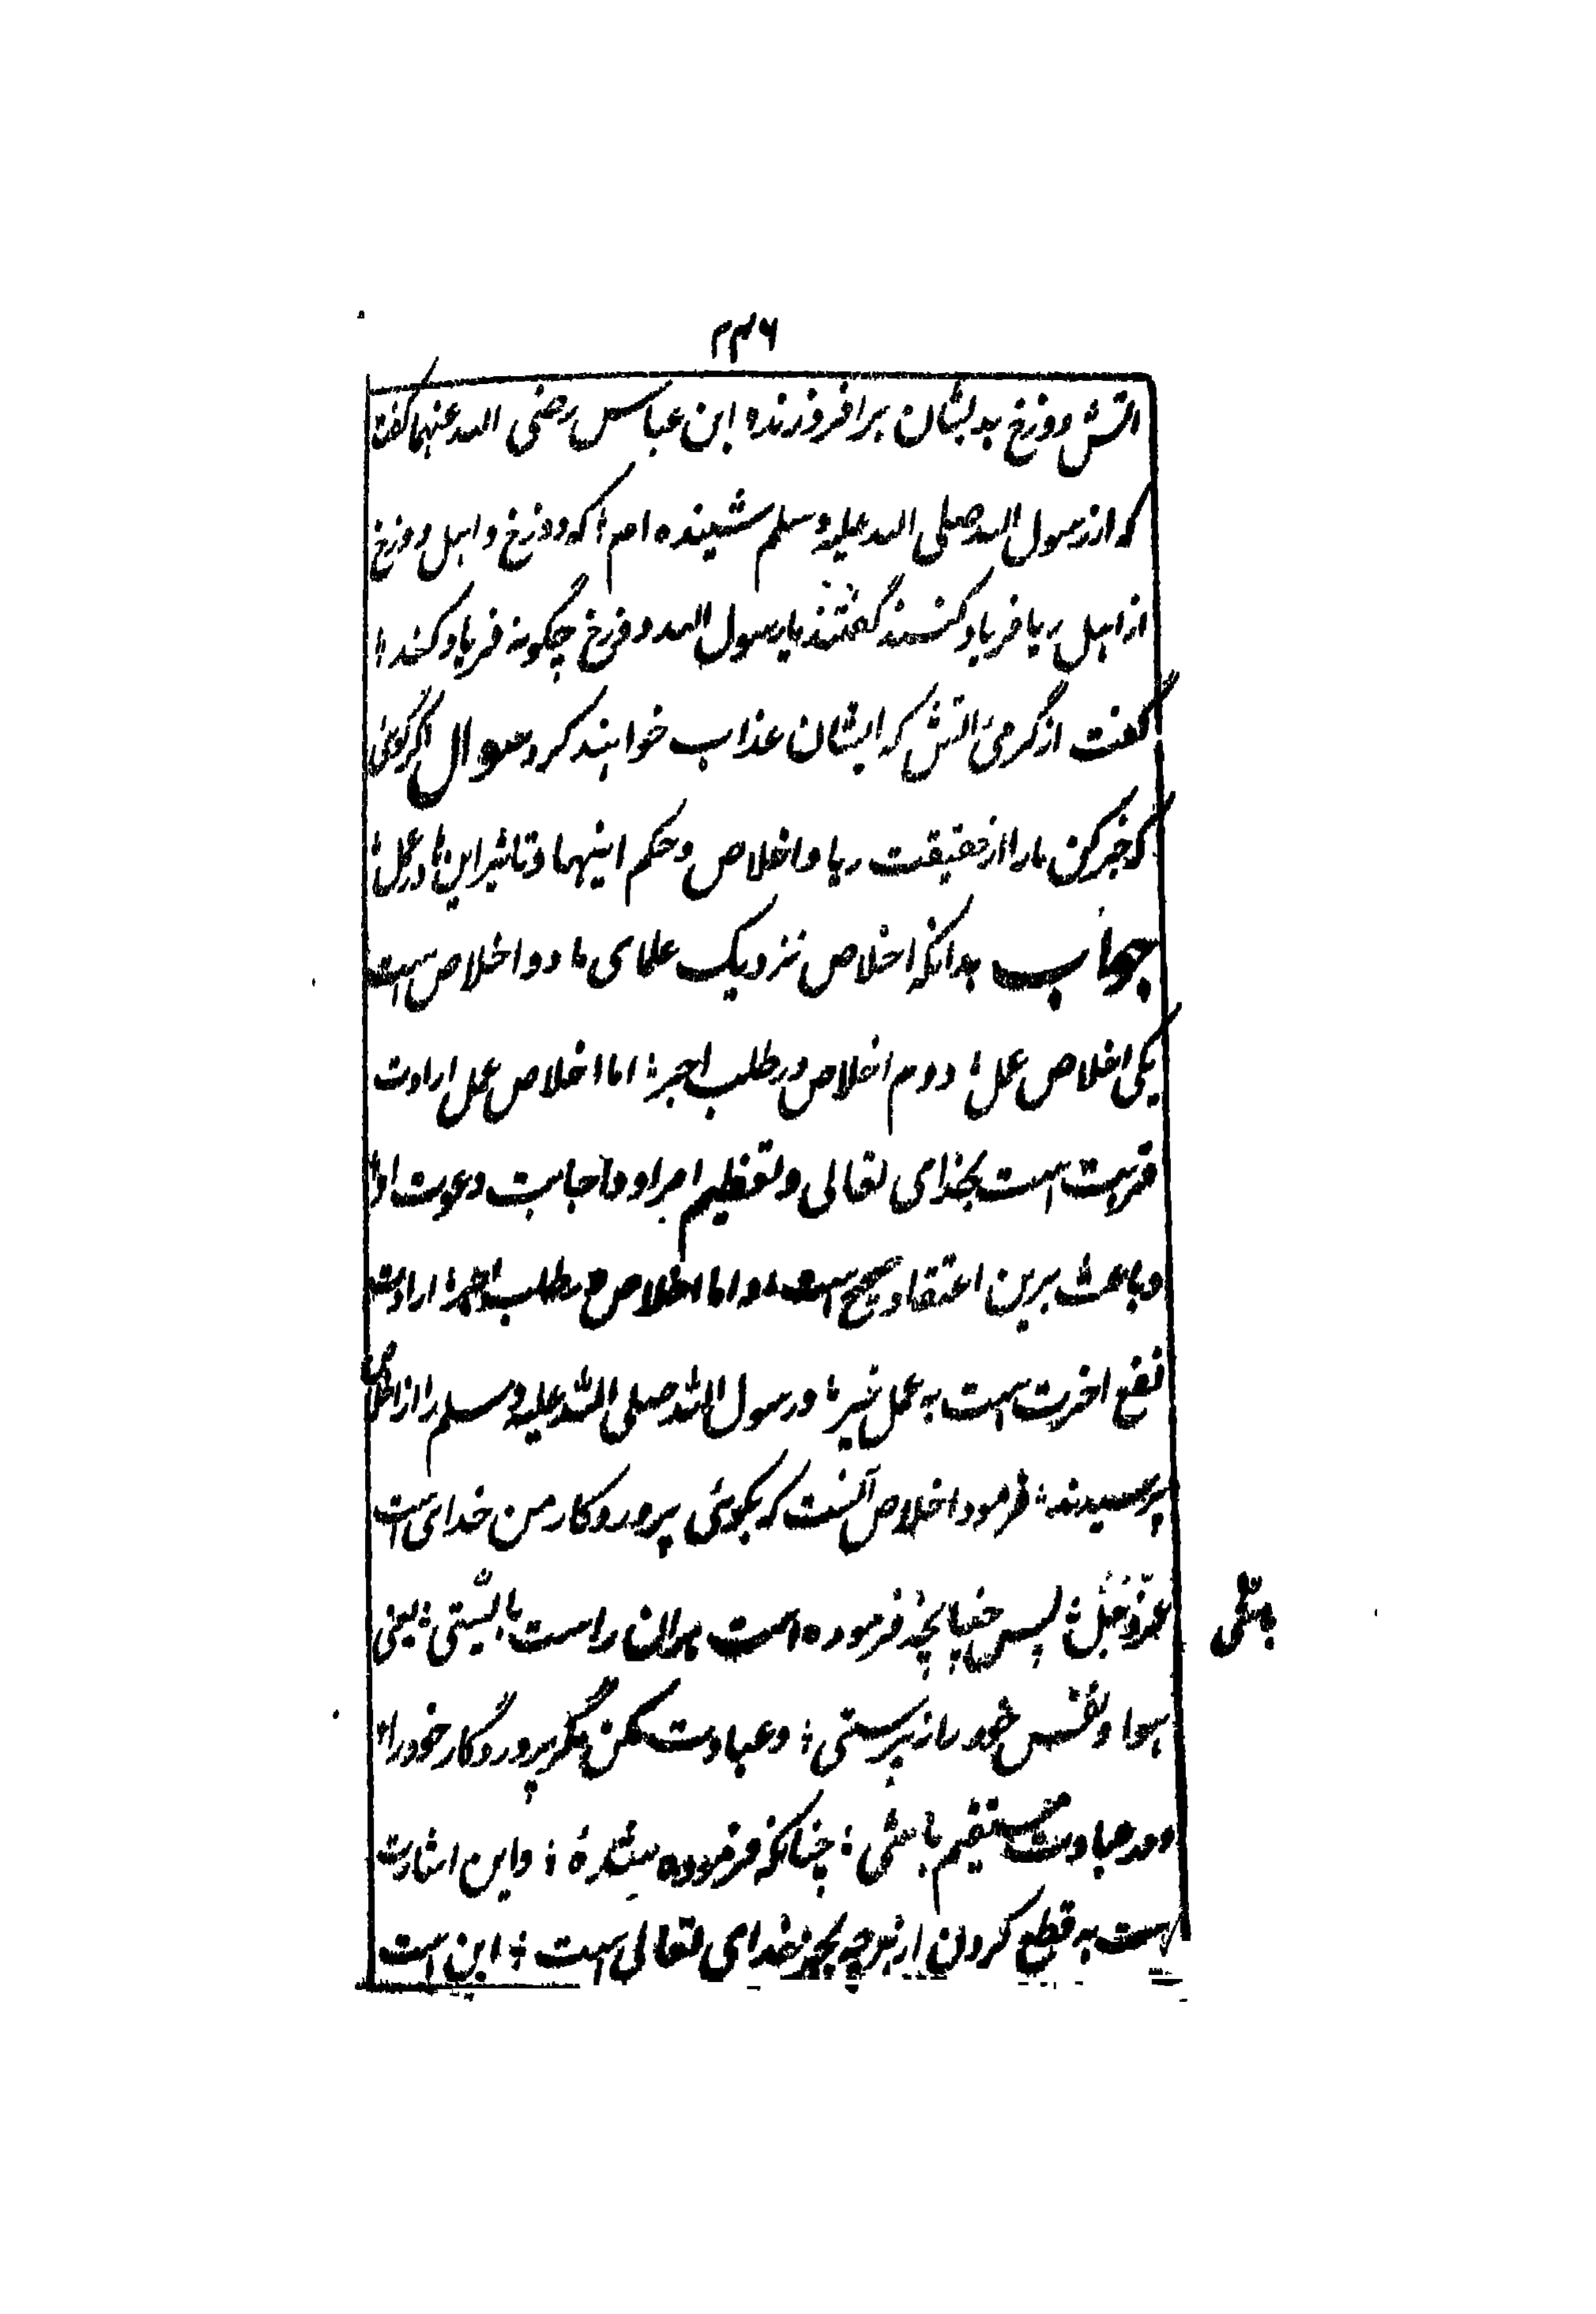 ۲۳۶
اتش دوزخ بدیشان برافروزند؛ ابن عباس رضی الله عنهما گفت
که از رسول الله صلی الله علیه وسلم شنیده ام؛ که دوزخ و اهل دوزخ
از اهل ریا فریاد کنند گفتند یا رسول الله دوزخ چگونه فریاد کند؛
گفت از گرمیٔ اتش که ایشان عذاب خواهند کرد سوال اگر گوئی
که خبر کن مارا از حقیقت ریا و اخلاص و حکم اینها و تاثیر این در عمل؛
جواب بدانکه اخلاص نزدیک علمای ما دو اخلاص است
یکی اخلاص عمل؛ دوم اخلاص در طلب اجر؛ اما اخلاص عمل ارادت
قربت است بخدای تعالی و تعظیم امر او و اجابت دعوت او؛
و باعث برین اعتقاد صحیح است؛ و اما اخلاص در طلب اجر؛ ارادت
نفع اخرت است به عمل خیر؛ و رسول الله صلی الله علیه وسلم را از اخلاص
پرسیدند؛ فرمود اخلاص آنست که بگوئی پروردگار من خدای است
عزّوجلّ؛ پس چنانچه فرموده است بران راست بایستی؛ یعنی
باشی
هوا و نفس خود را نپرستی؛ و عبادت مکن مگر پروردگار خود را؛
و در عبادت مستقیم باشی؛ چنانکه فرموده شدهٔ؛ و این اشارت
است به قطع کردن از هرچه بجز خدای تعالی است؛ این است